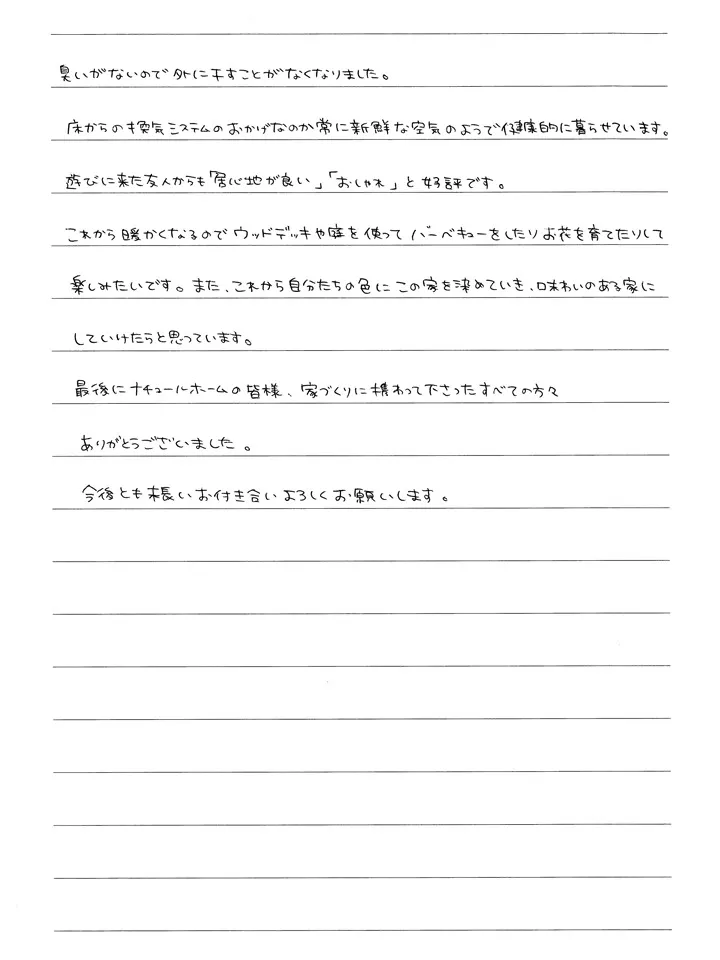 臭いがないので外に干すことがなくなりました。
床からの換気システムのおかげなのか常に新鮮な空気のようで健康的に暮らせています。
遊びに来た友人からも「居心地が良い」「おしゃれ」と好評です。
これから暖かくなるのでウッドデッキや庭を使ってバーベキューをしたりお花を育てたりして
楽しみたいです。また、これから自分たちの色にこの家を染めていき、味わいのある家に
していけたらと思っています。
最後にナチュールホームの皆様、家づくりに携わって下さったすべての方々
ありがとうございました。
今後とも末長いお付き合いよろしくお願いします。